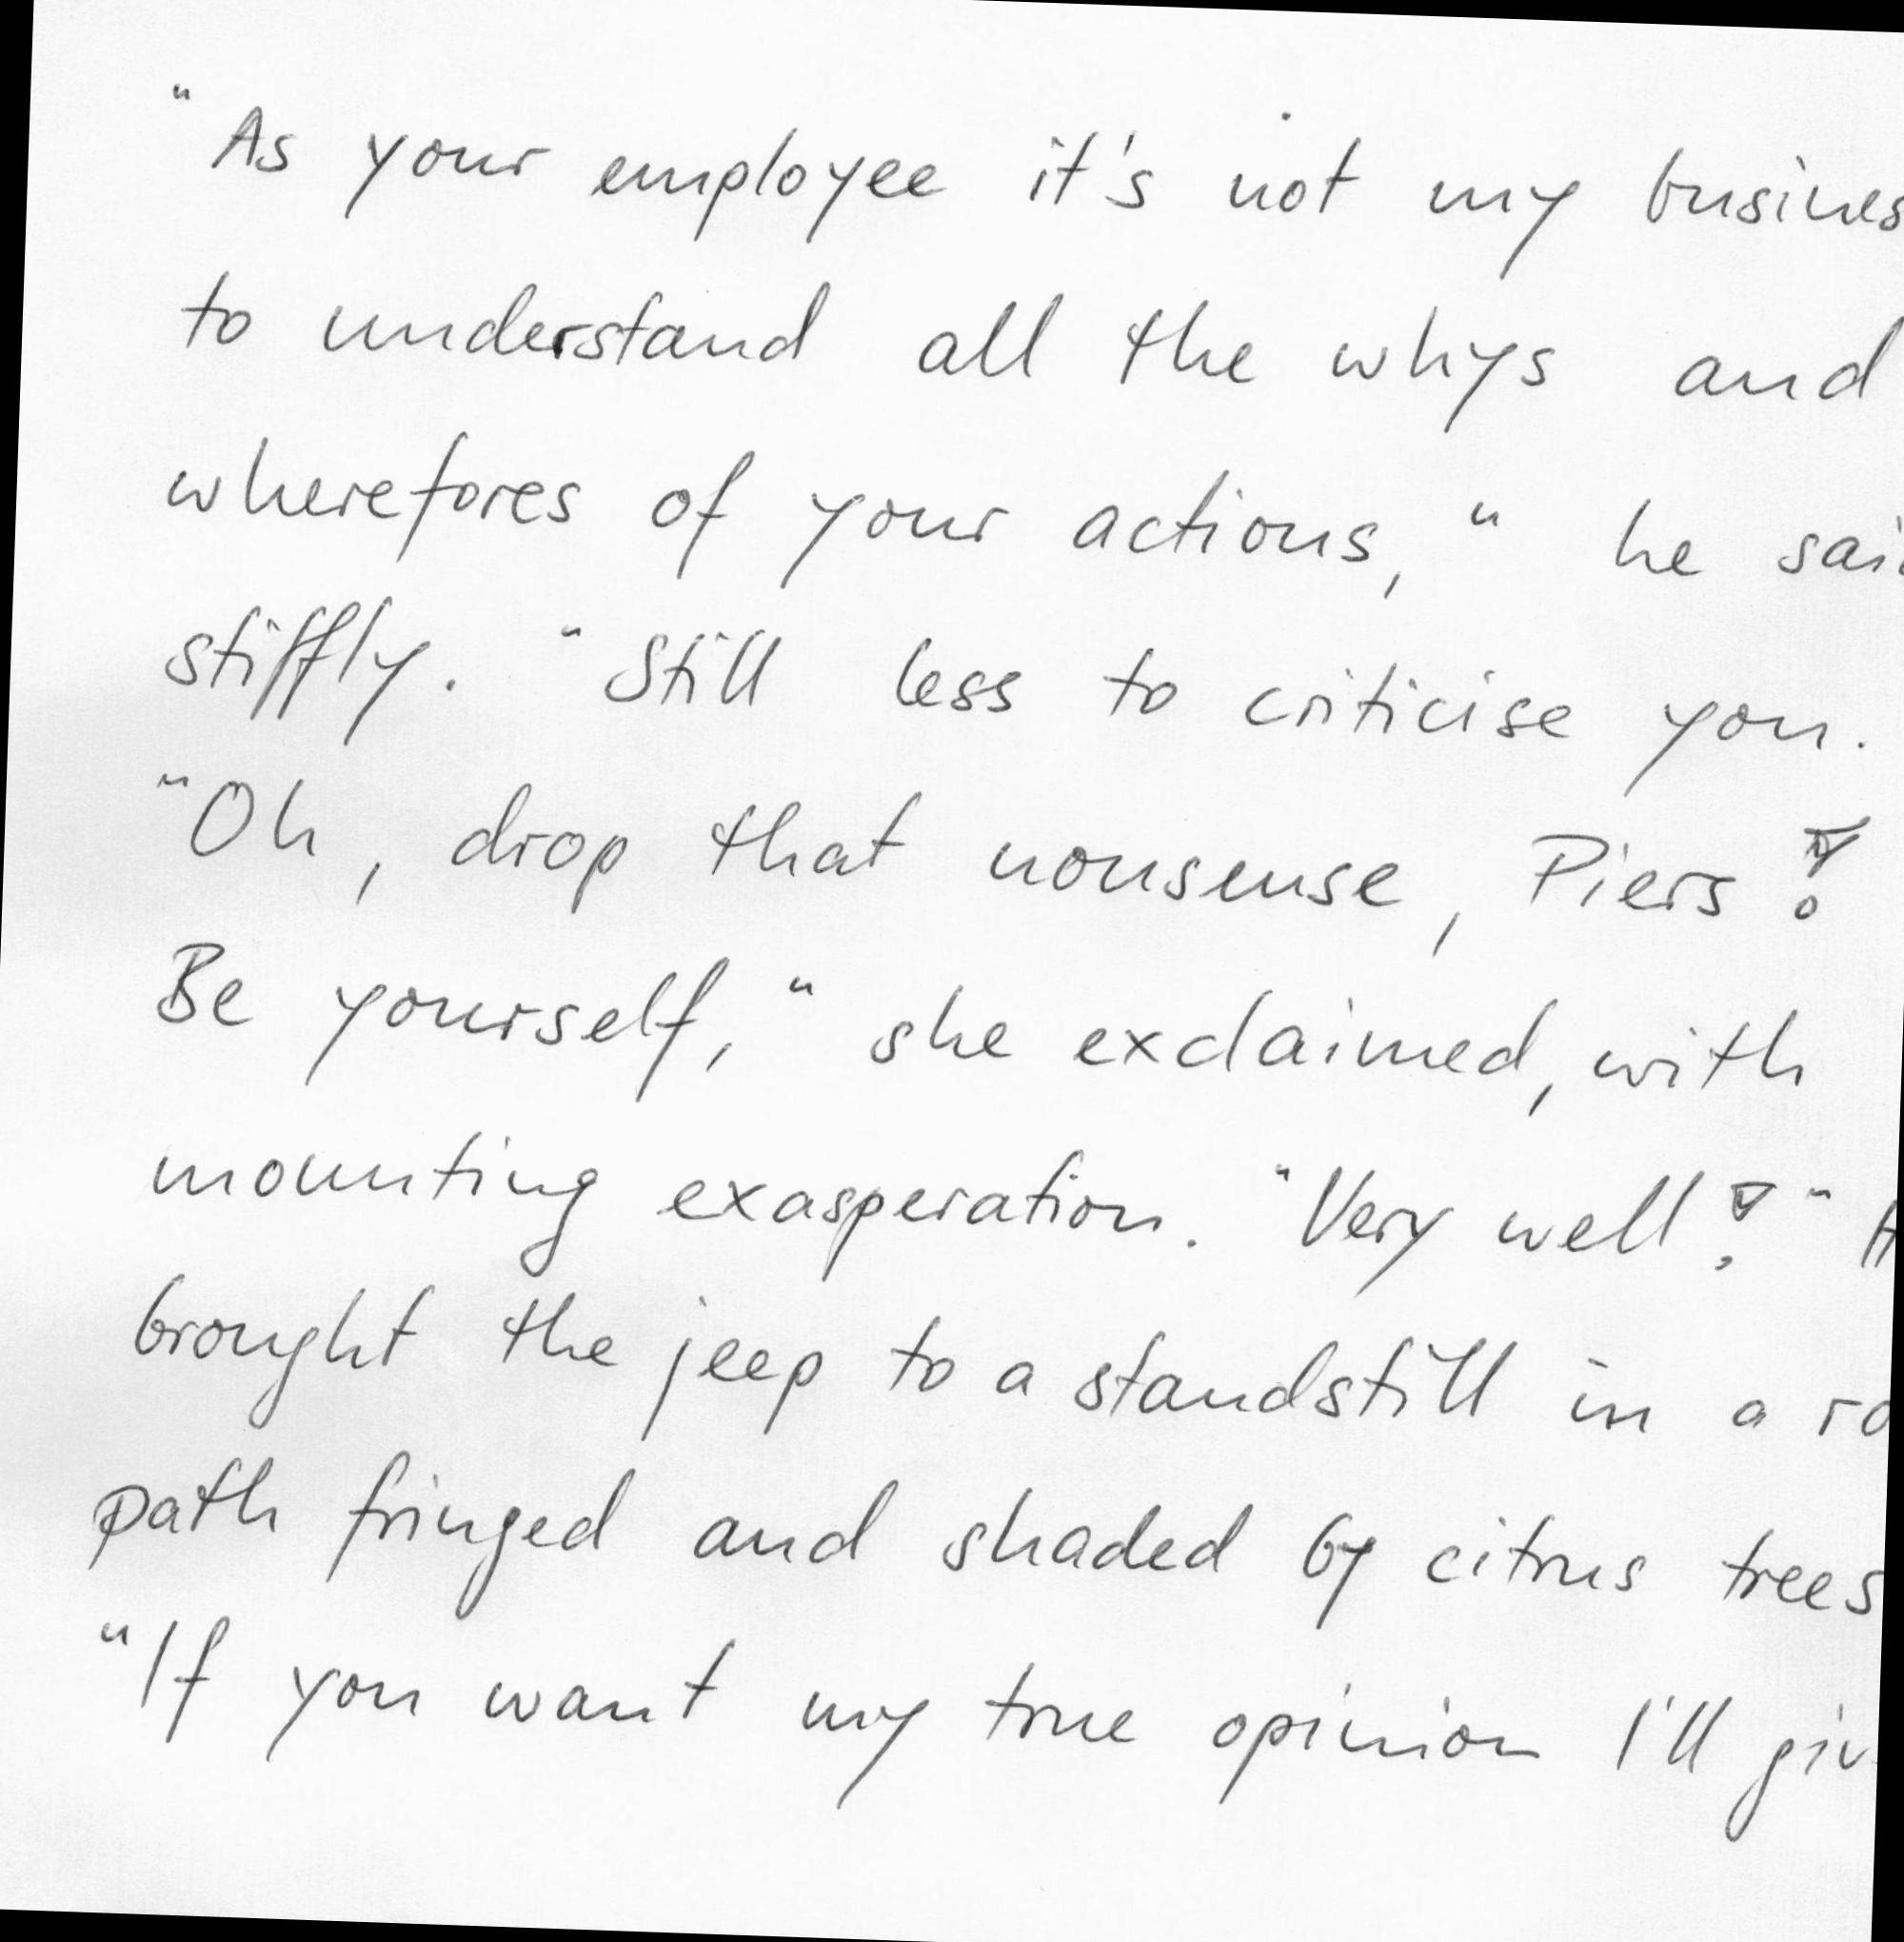 "As your employee it's not my busines
to understand all the whys and
wherefores of your actions," he said
stiffly. "Still less to criticise you.
"Oh, drop that nonsense, Piers!
Be yourself," she exclaimed, with
mounting exasperation. "Very well!"
brought the jeep to a standstill in a
path fringed and shaded by citrus trees
"If you want my true opinion I'll giv